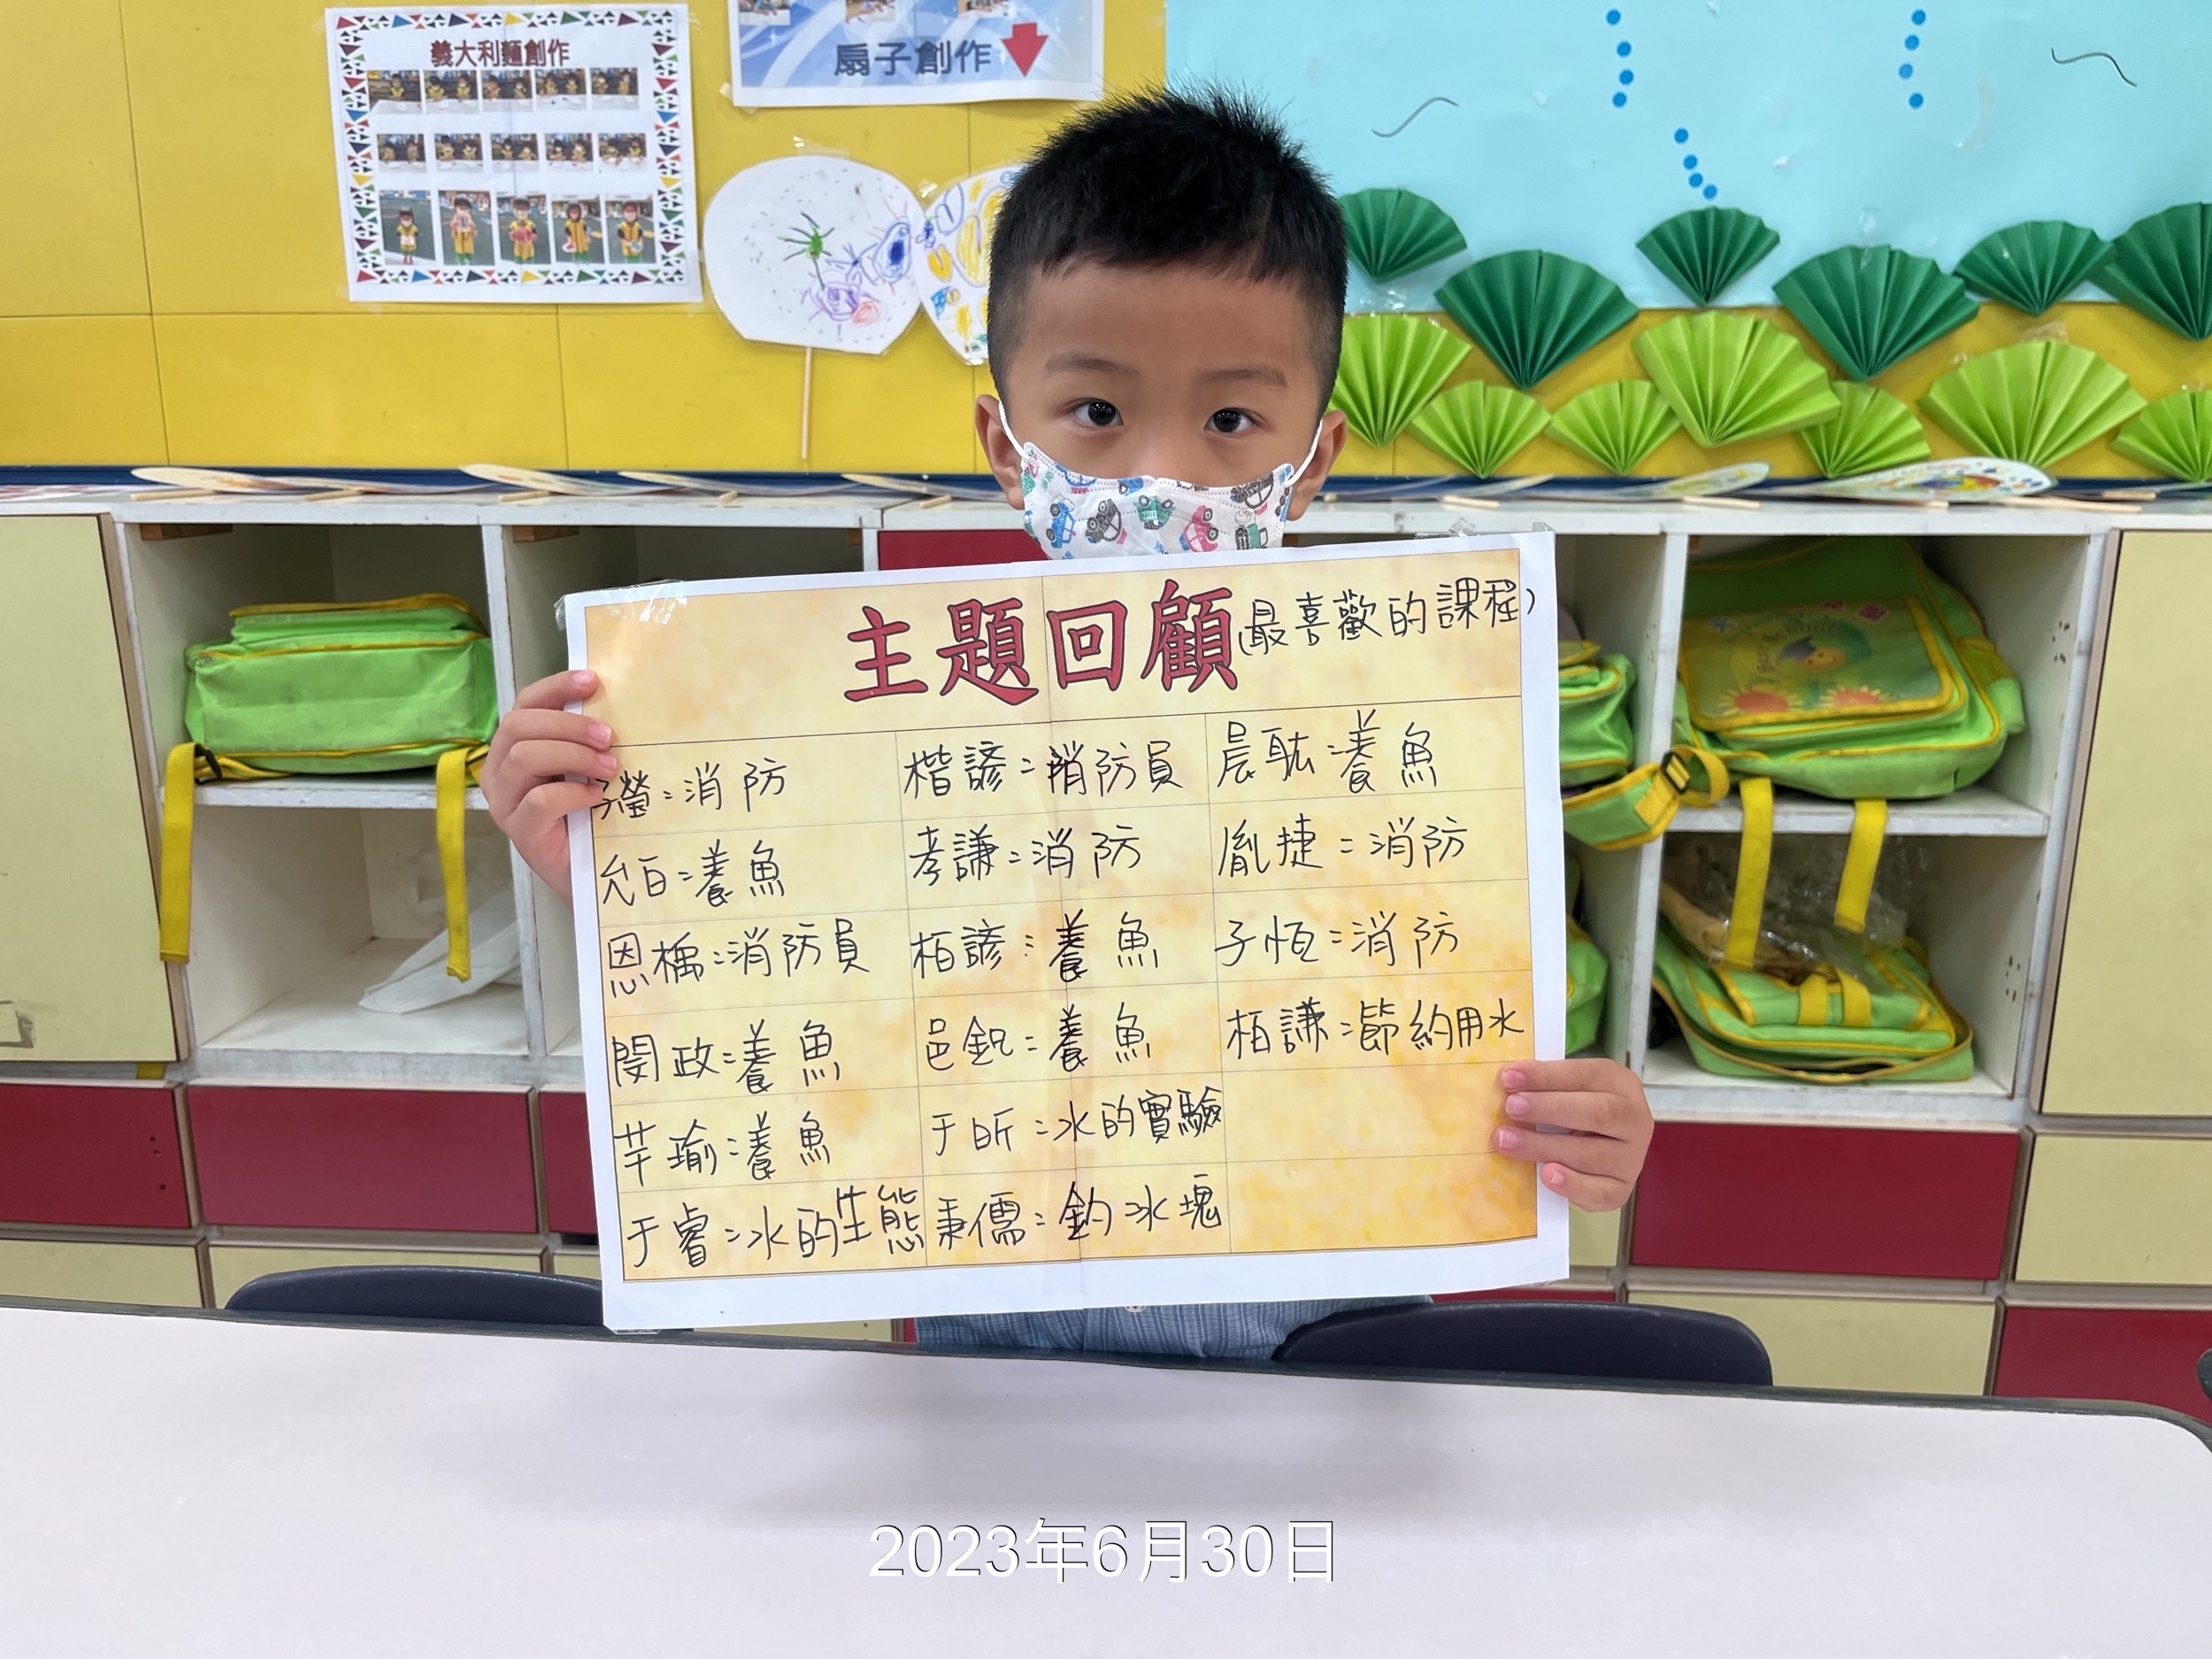 義大利麵創作
扇子創作
主題回顧(最喜歡的課程)
瑩:消防
楷諺:消防員
晨耾:養魚
允百:養魚
孝謙:消防
胤捷:消防
恩楀:消防員
栢諺:養魚
子恆:消防
閔政:養魚
邑鋧:養魚
栢謙:節約用水
芊瑜:養魚
于昕:水的實驗
于睿:水的生態
秉儒:釣冰塊
2023年6月30日